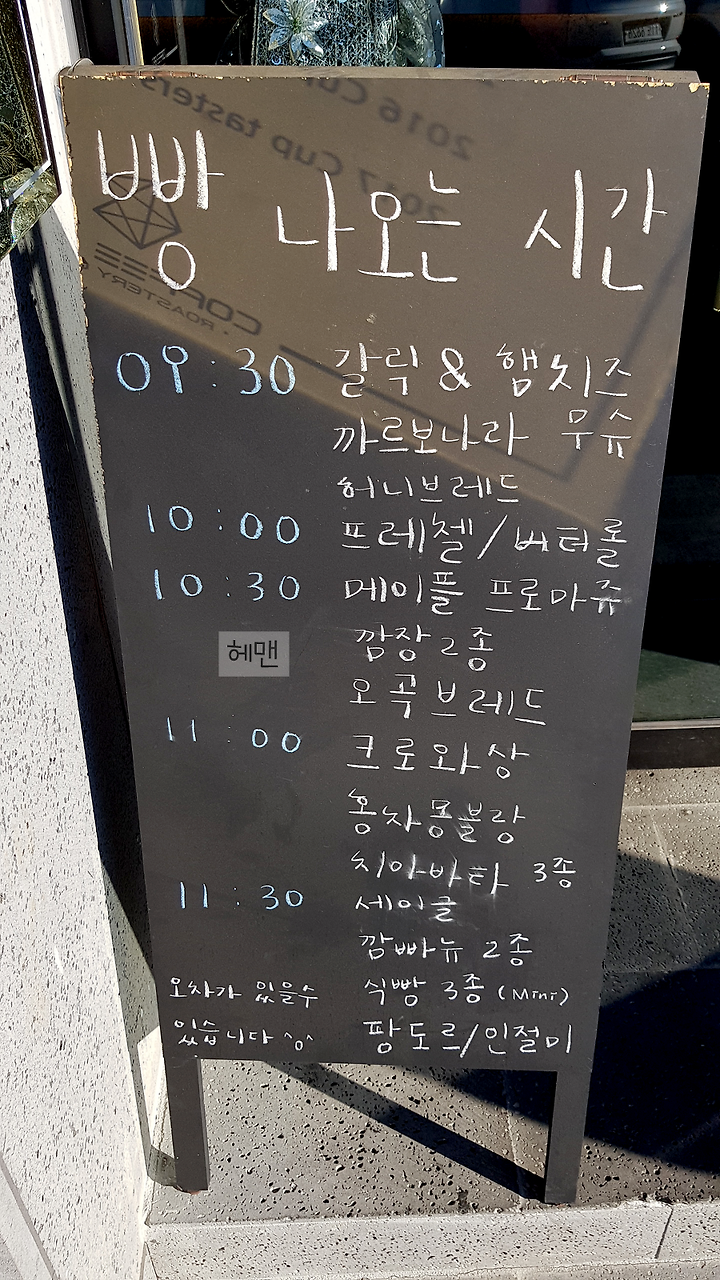 2016 Cup
2017 Cup tasters
COFFEE
ROASTERY
빵 나오는 시간
09:30 갈릭 & 햄치즈
까르보나라 무슈
허니브레드
10:00 프레첼/버터롤
10:30 메이플 프로마쥬
깜장 2종
헤맨
오곡브레드
11:00 크로와상
홍차몽블랑
치아바타 3종
11:30 베이글
깜빠뉴 2종
오차가 있을수 식빵 3종 (Mini)
있습니다 ^o^ 팡도르/인절미